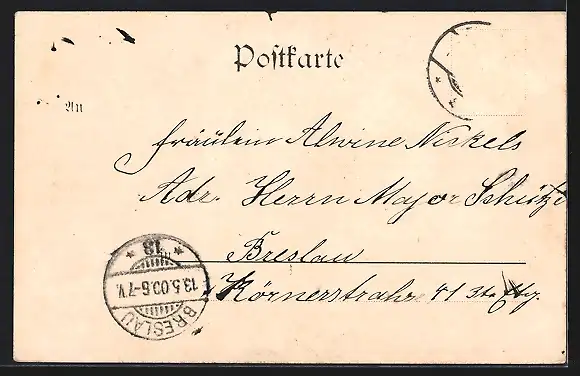 Postkarte
An
Fräulein Alwine Nickels
Adr. Herrn Major Schütze
Breslau
Körnerstraße 41
BRESLAU
13.5.00.6-7V.
* 13 *